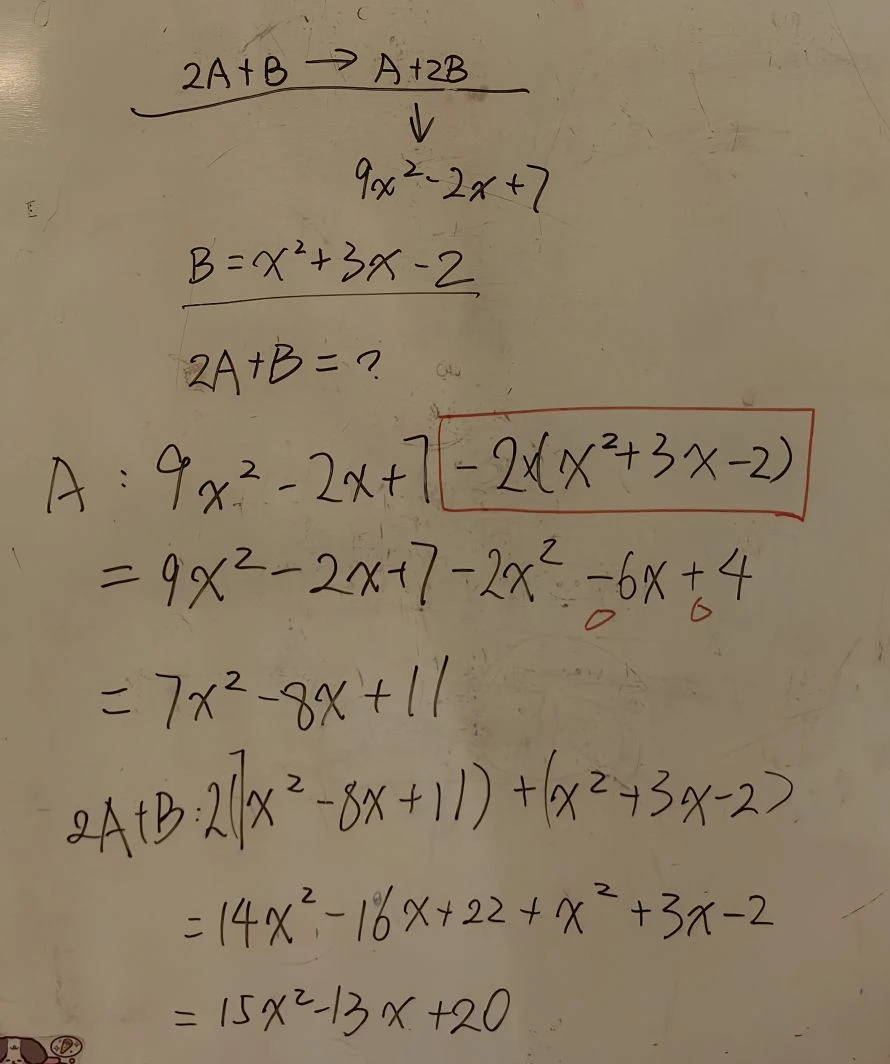 2A+B → A+2B
↓
9x²-2x+7
B=x²+3x-2
2A+B=?
A: 9x²-2x+7-2x(x²+3x-2)
=9x²-2x+7-2x²-6x+4
=7x²-8x+11
2A+B:2(7x²-8x+11)+(x²+3x-2)
=14x²-16x+22+x²+3x-2
=15x²-13x+20